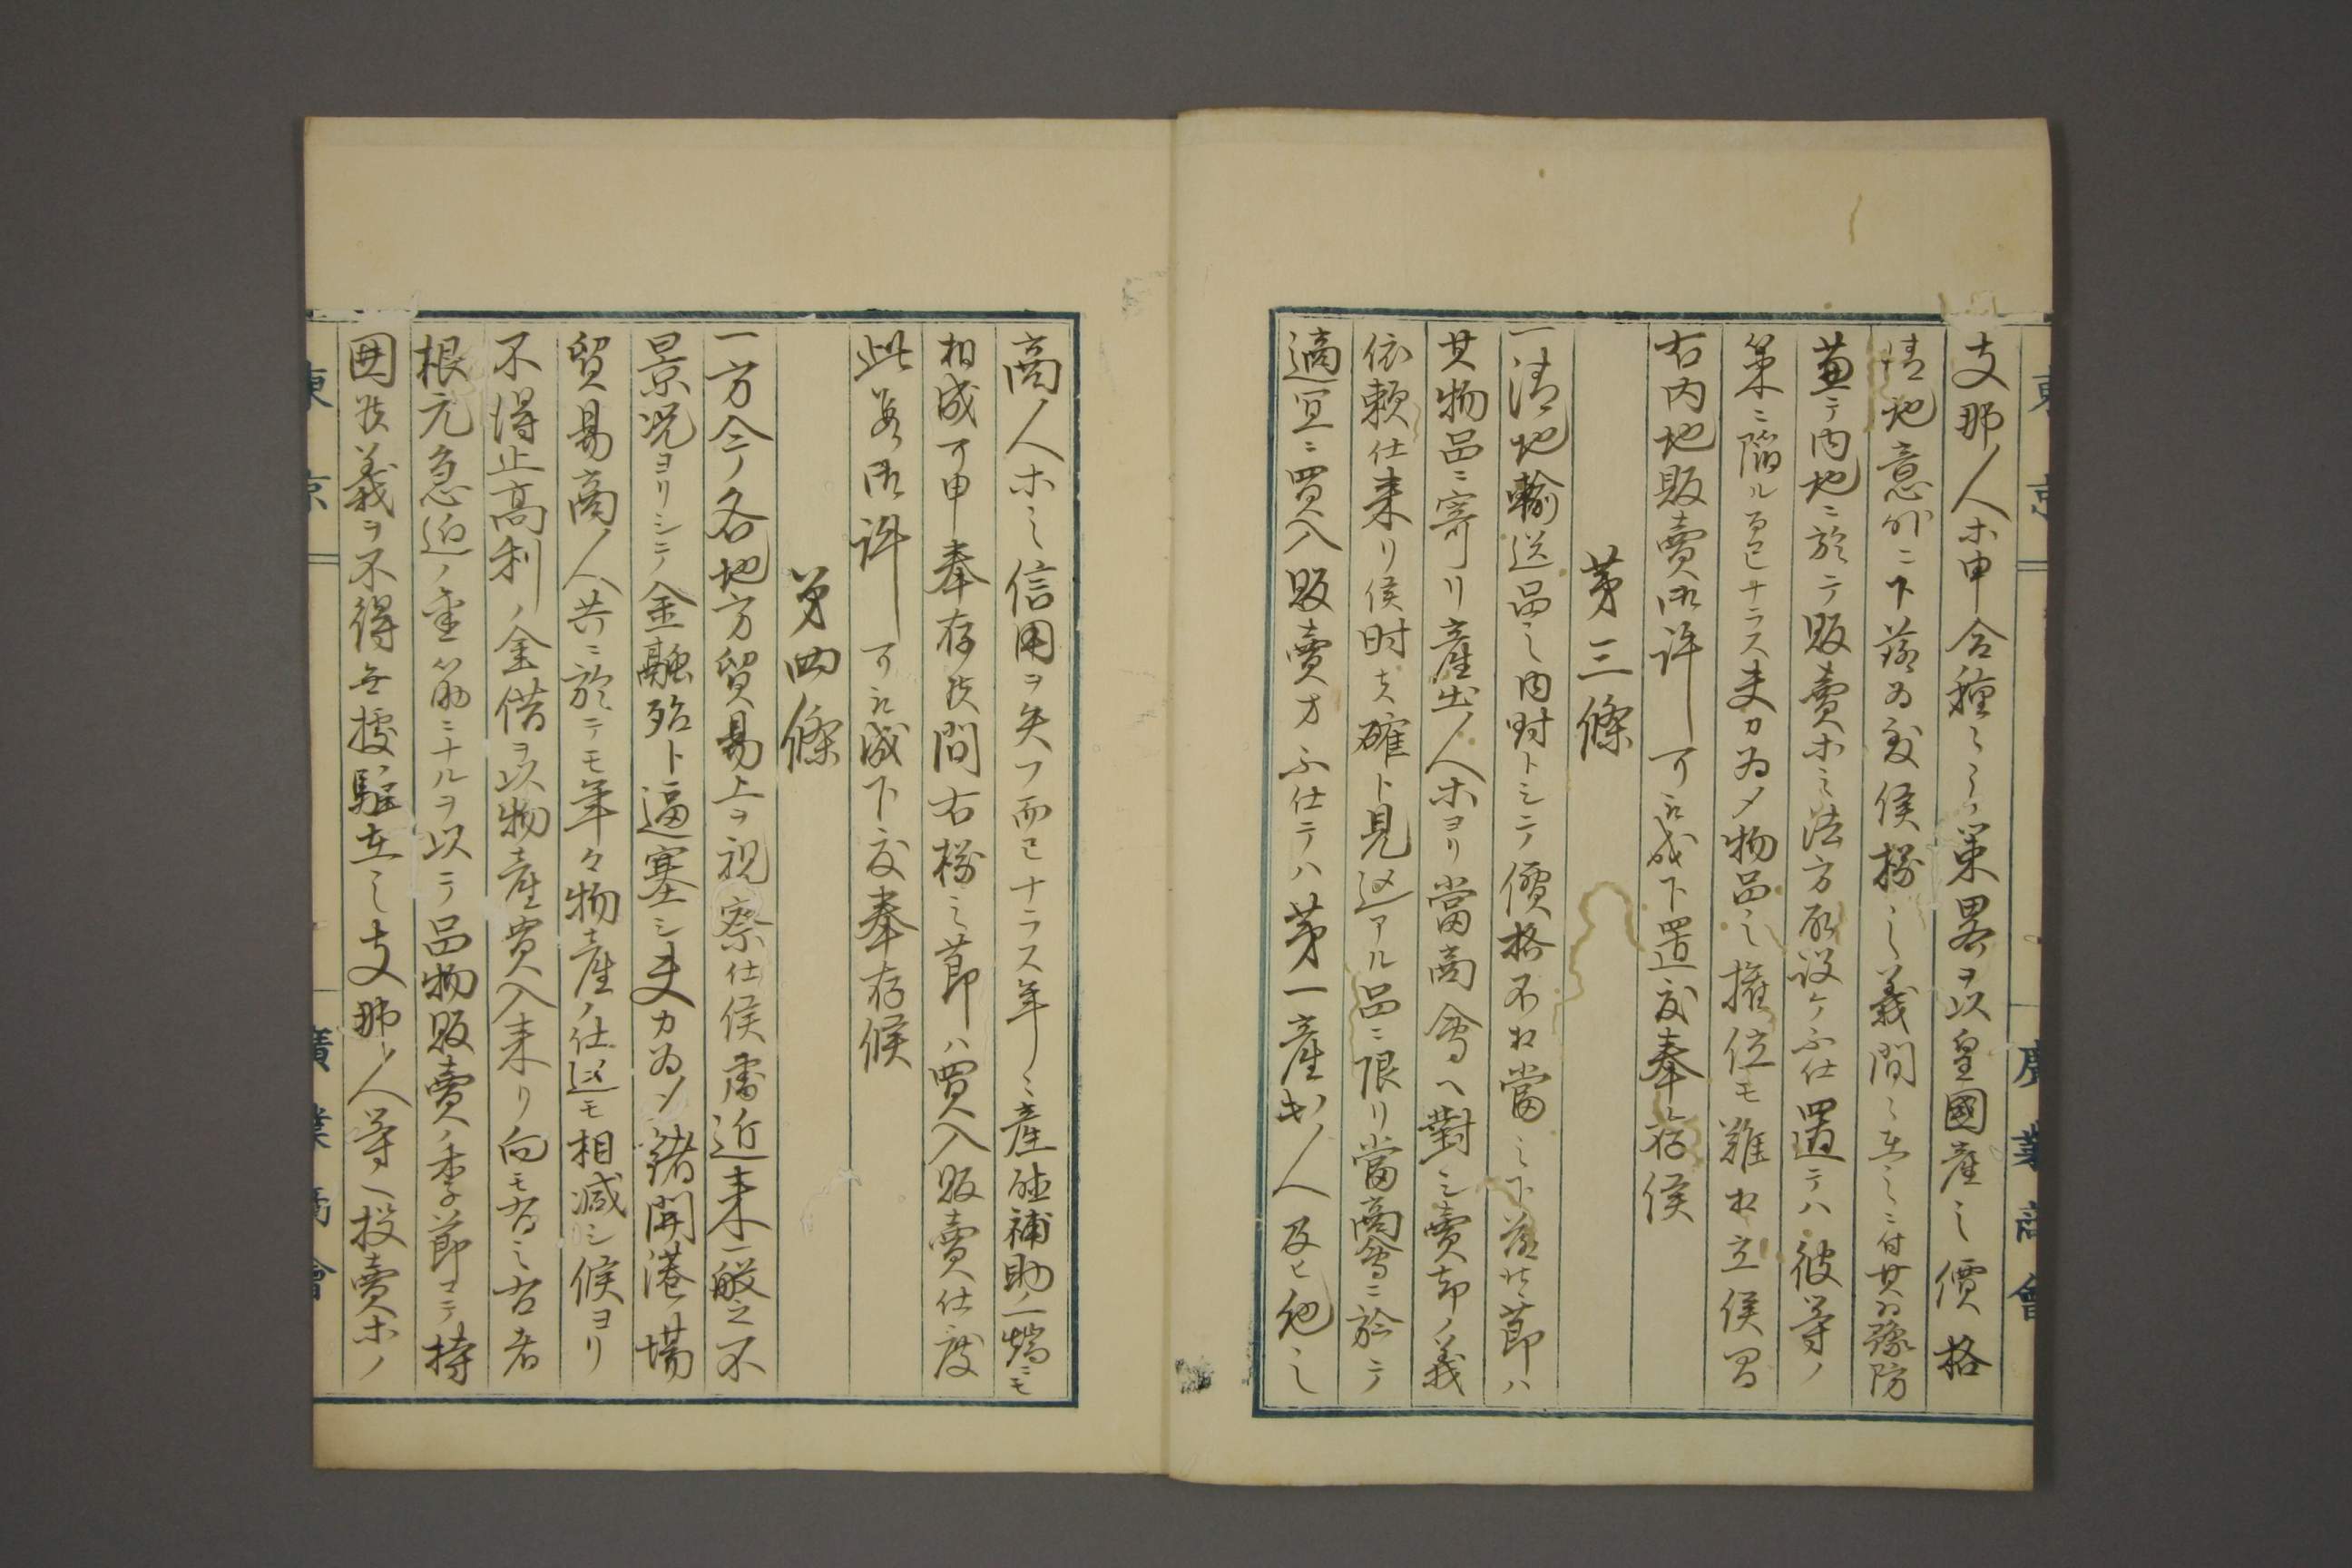 東京 廣業商會
支那人ホ申合種々ノ策畧ヲ以皇國産之價格
清地意外ニ下落為致候様之義間々在之ニ付其為豫防
兼テ内地ニ於テ販賣ホ之法方取設ケ不仕置テハ彼等ノ
策ニ陥ル而已ナラス夫カ為メ物品之権位モ難相立候間
右内地販賣御許可被成下置度奉存候
第三條
一清地輸送品之内時トシテ價格不相當之下落ノ節ハ
其物品ニ寄リ産出人ホヨリ當商會ヘ對シ賣却ノ義
依頼仕来リ候時ハ確ト見込アル品ニ限リ當商會ニ於テ
適宜ニ買入販賣方不仕テハ第一産出人及ヒ他之
商人ホ之信用ヲ失フ而已ナラス年々之産出補助ノ一端ニモ
相成可申奉存候間右様之節ハ買入販賣仕度
此段御許可被成下度奉存候
第四條
一方今ノ各地方貿易上ヲ視察仕候處近来一般之不
景况ヨリシテ金融殆ト逼塞シ夫カ為メ諸開港ノ場
貿易商人共ニ於テモ年々物産ノ仕込モ相减シ候ヨリ
不得止高利ノ金借ヲ以物産買入来リ向モ有之右者
根元急迫ノ金筋ニナルヲ以テ品物販賣ノ季節マテ持
囲候義ヲ不得無據駐在之支那人等ヘ投賣ホノ
東京 廣業商會